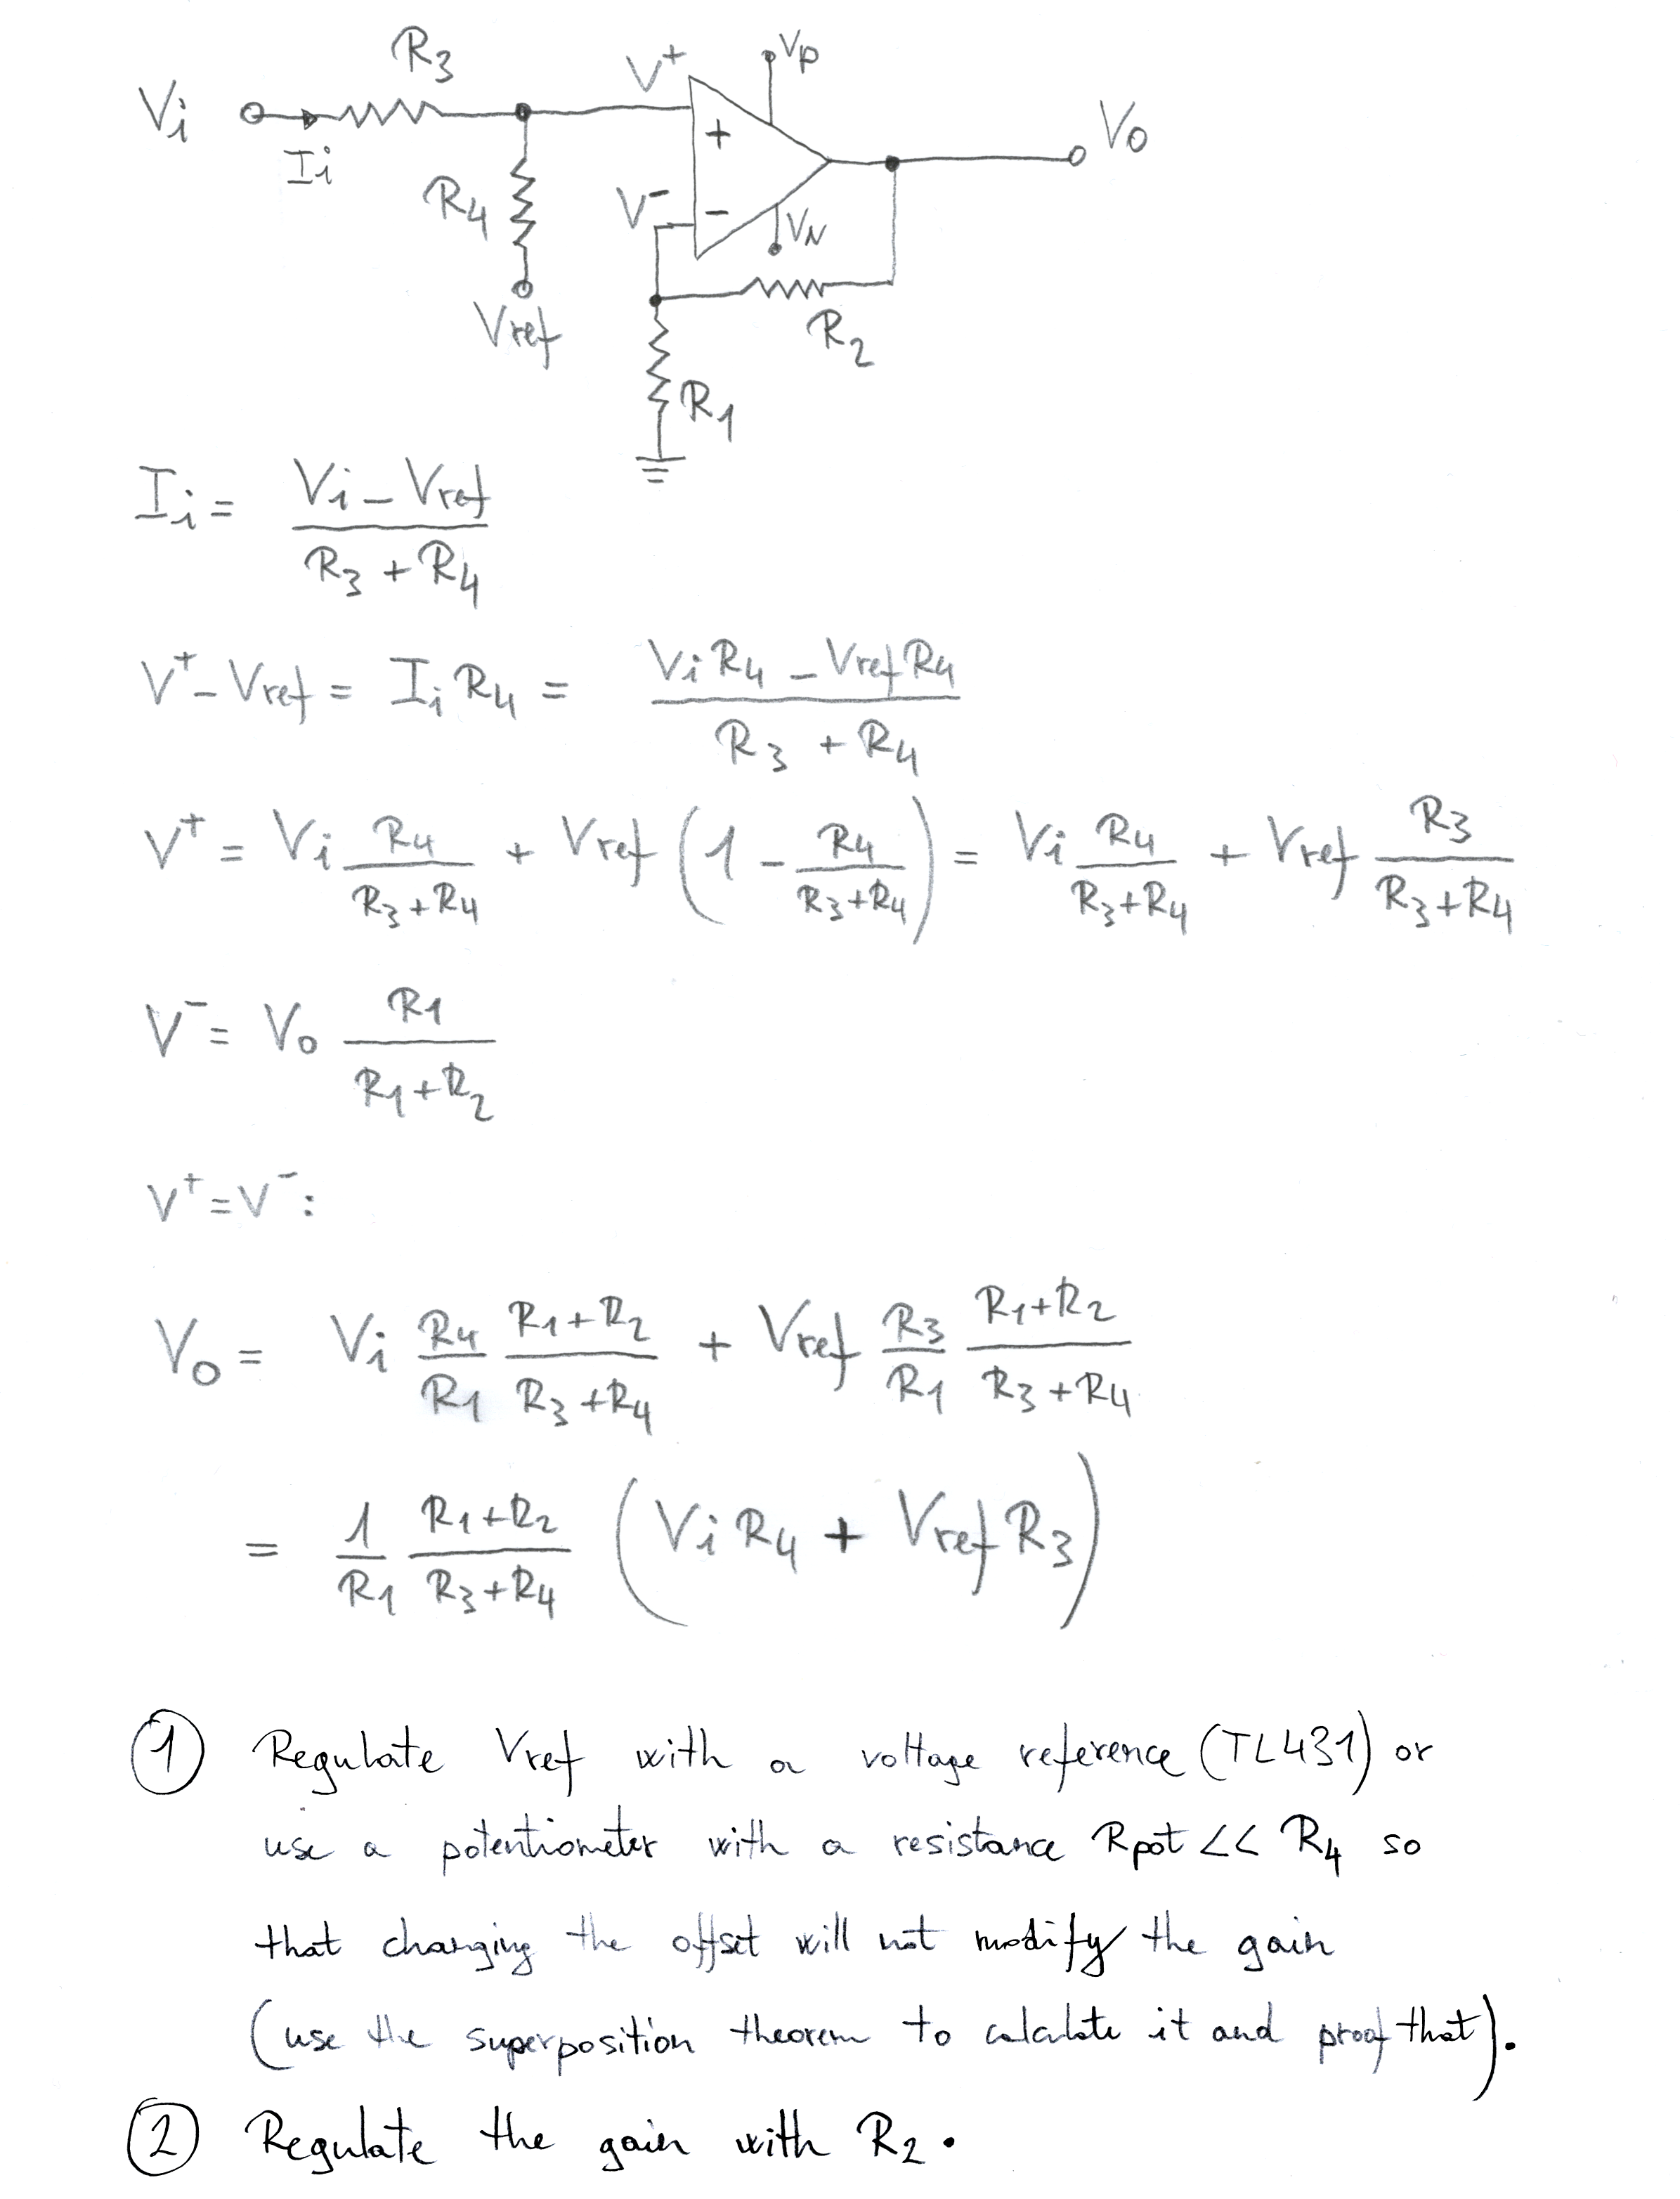 R3
Vi
Ii
V+
Vp
+
Vo
R4
V-
-
VN
Vref
R2
R1
Ii = (Vi - Vref) / (R3 + R4)
V+ - Vref = Ii R4 = (Vi R4 - Vref R4) / (R3 + R4)
V+ = Vi R4 / (R3+R4) + Vref (1 - R4 / (R3+R4)) = Vi R4 / (R3+R4) + Vref R3 / (R3+R4)
V- = Vo R1 / (R1+R2)
V+ = V- :
Vo = Vi R4 / R1 (R1+R2) / (R3+R4) + Vref R3 / R1 (R1+R2) / (R3+R4)
= 1 / R1 (R1+R2) / (R3+R4) (Vi R4 + Vref R3)
① Regulate Vref with a voltage reference (TL431) or
use a potentiometer with a resistance Rpot << R4 so
that changing the offset will not modify the gain
(use the superposition theorem to calculate it and proof that).
② Regulate the gain with R2.